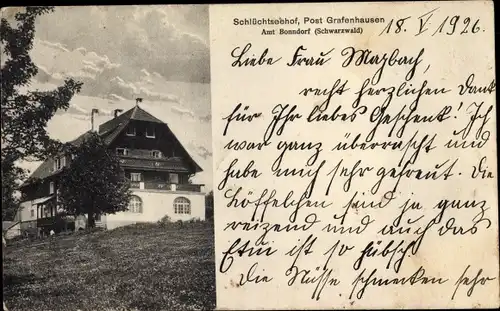 Schlüchtseehof, Post Grafenhausen
Amt Bonndorf (Schwarzwald)
18. V 1926.
Liebe Frau Maybach,
recht herzlichen Dank
für Ihr liebes Geschenk! Ich
war ganz überrascht und
habe mich sehr gefreut. Die
Löffelchen sind ja ganz
reizend und auch das
Etui ist so hübsch!
Die Nüsse schmecken sehr